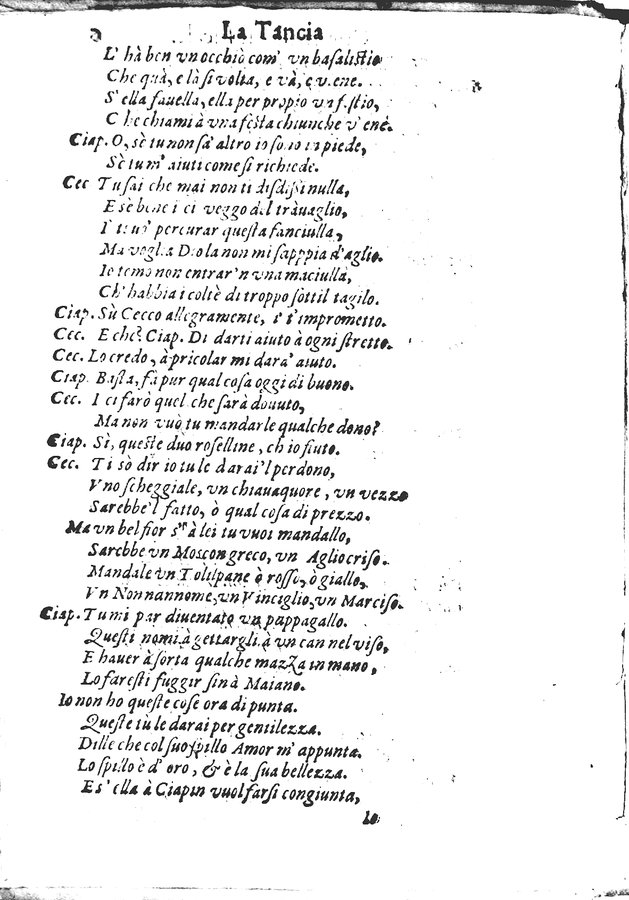 La Tancia
L' hà ben vn occhio com' vn basalistio
Che quà, e là si volta, e và, e viene.
S' ella fauella, ella per propio vn fistio,
Che chiami à vna festa chiunche v' ene.
Ciap. O, sè tu non sa' altro io so io in piede,
Sè tu m' aiuti come si richiede.
Cec Tu sai che mai non ti disdissi nulla,
E sè bene i ci veggo del trauaglio,
I' ti vo' percurar questa fanciulla,
Ma voglia Dio la non mi sapppia d'aglio.
Io temo non entrar'n vna maciulla,
Ch' habbia i coltè di troppo sottil tagilo.
Ciap. Sù Cecco allegramente, i' t' imprometto.
Cec. E che? Ciap. Di darti aiuto à ogni stretto.
Cec. Lo credo, à pricolar mi dara' aiuto.
Ciap. Basta, fà pur qual cosa oggi di buono.
Cec. I ci farò quel che sarà douuto,
Ma non vuò tu mandarle qualche dono?
Ciap. Sì, queste duo roselline, ch io fiuto.
Cec. Ti sò dir io tu le darai'l perdono,
Vno scheggiale, vn chiauaquore, vn vezzo
Sarebbe'l fatto, ò qual cosa di prezzo.
Ma vn bel fior s'' à lei tu vuoi mandallo,
Sarebbe vn Moscongreco, vn Agliocriso.
Mandale vn Tolilpane ò rosso, ò giallo,
Vn Nonnannome, vn Vinciglio, vn Marciso.
Ciap. Tu mi par diuentato vn pappagallo.
Questi nomi à gettargli à vn can nel viso,
E hauer à sorta qualche mazza in mano,
Lo faresti fuggir sin à Maiano.
Io non ho queste cose ora di punta.
Queste tù le darai per gentilezza.
Dille che col suo spillo Amor m' appunta.
Lo spillo è d' oro, & è la sua bellezza.
E s' ella à Ciapin vuol farsi congiunta,
Io